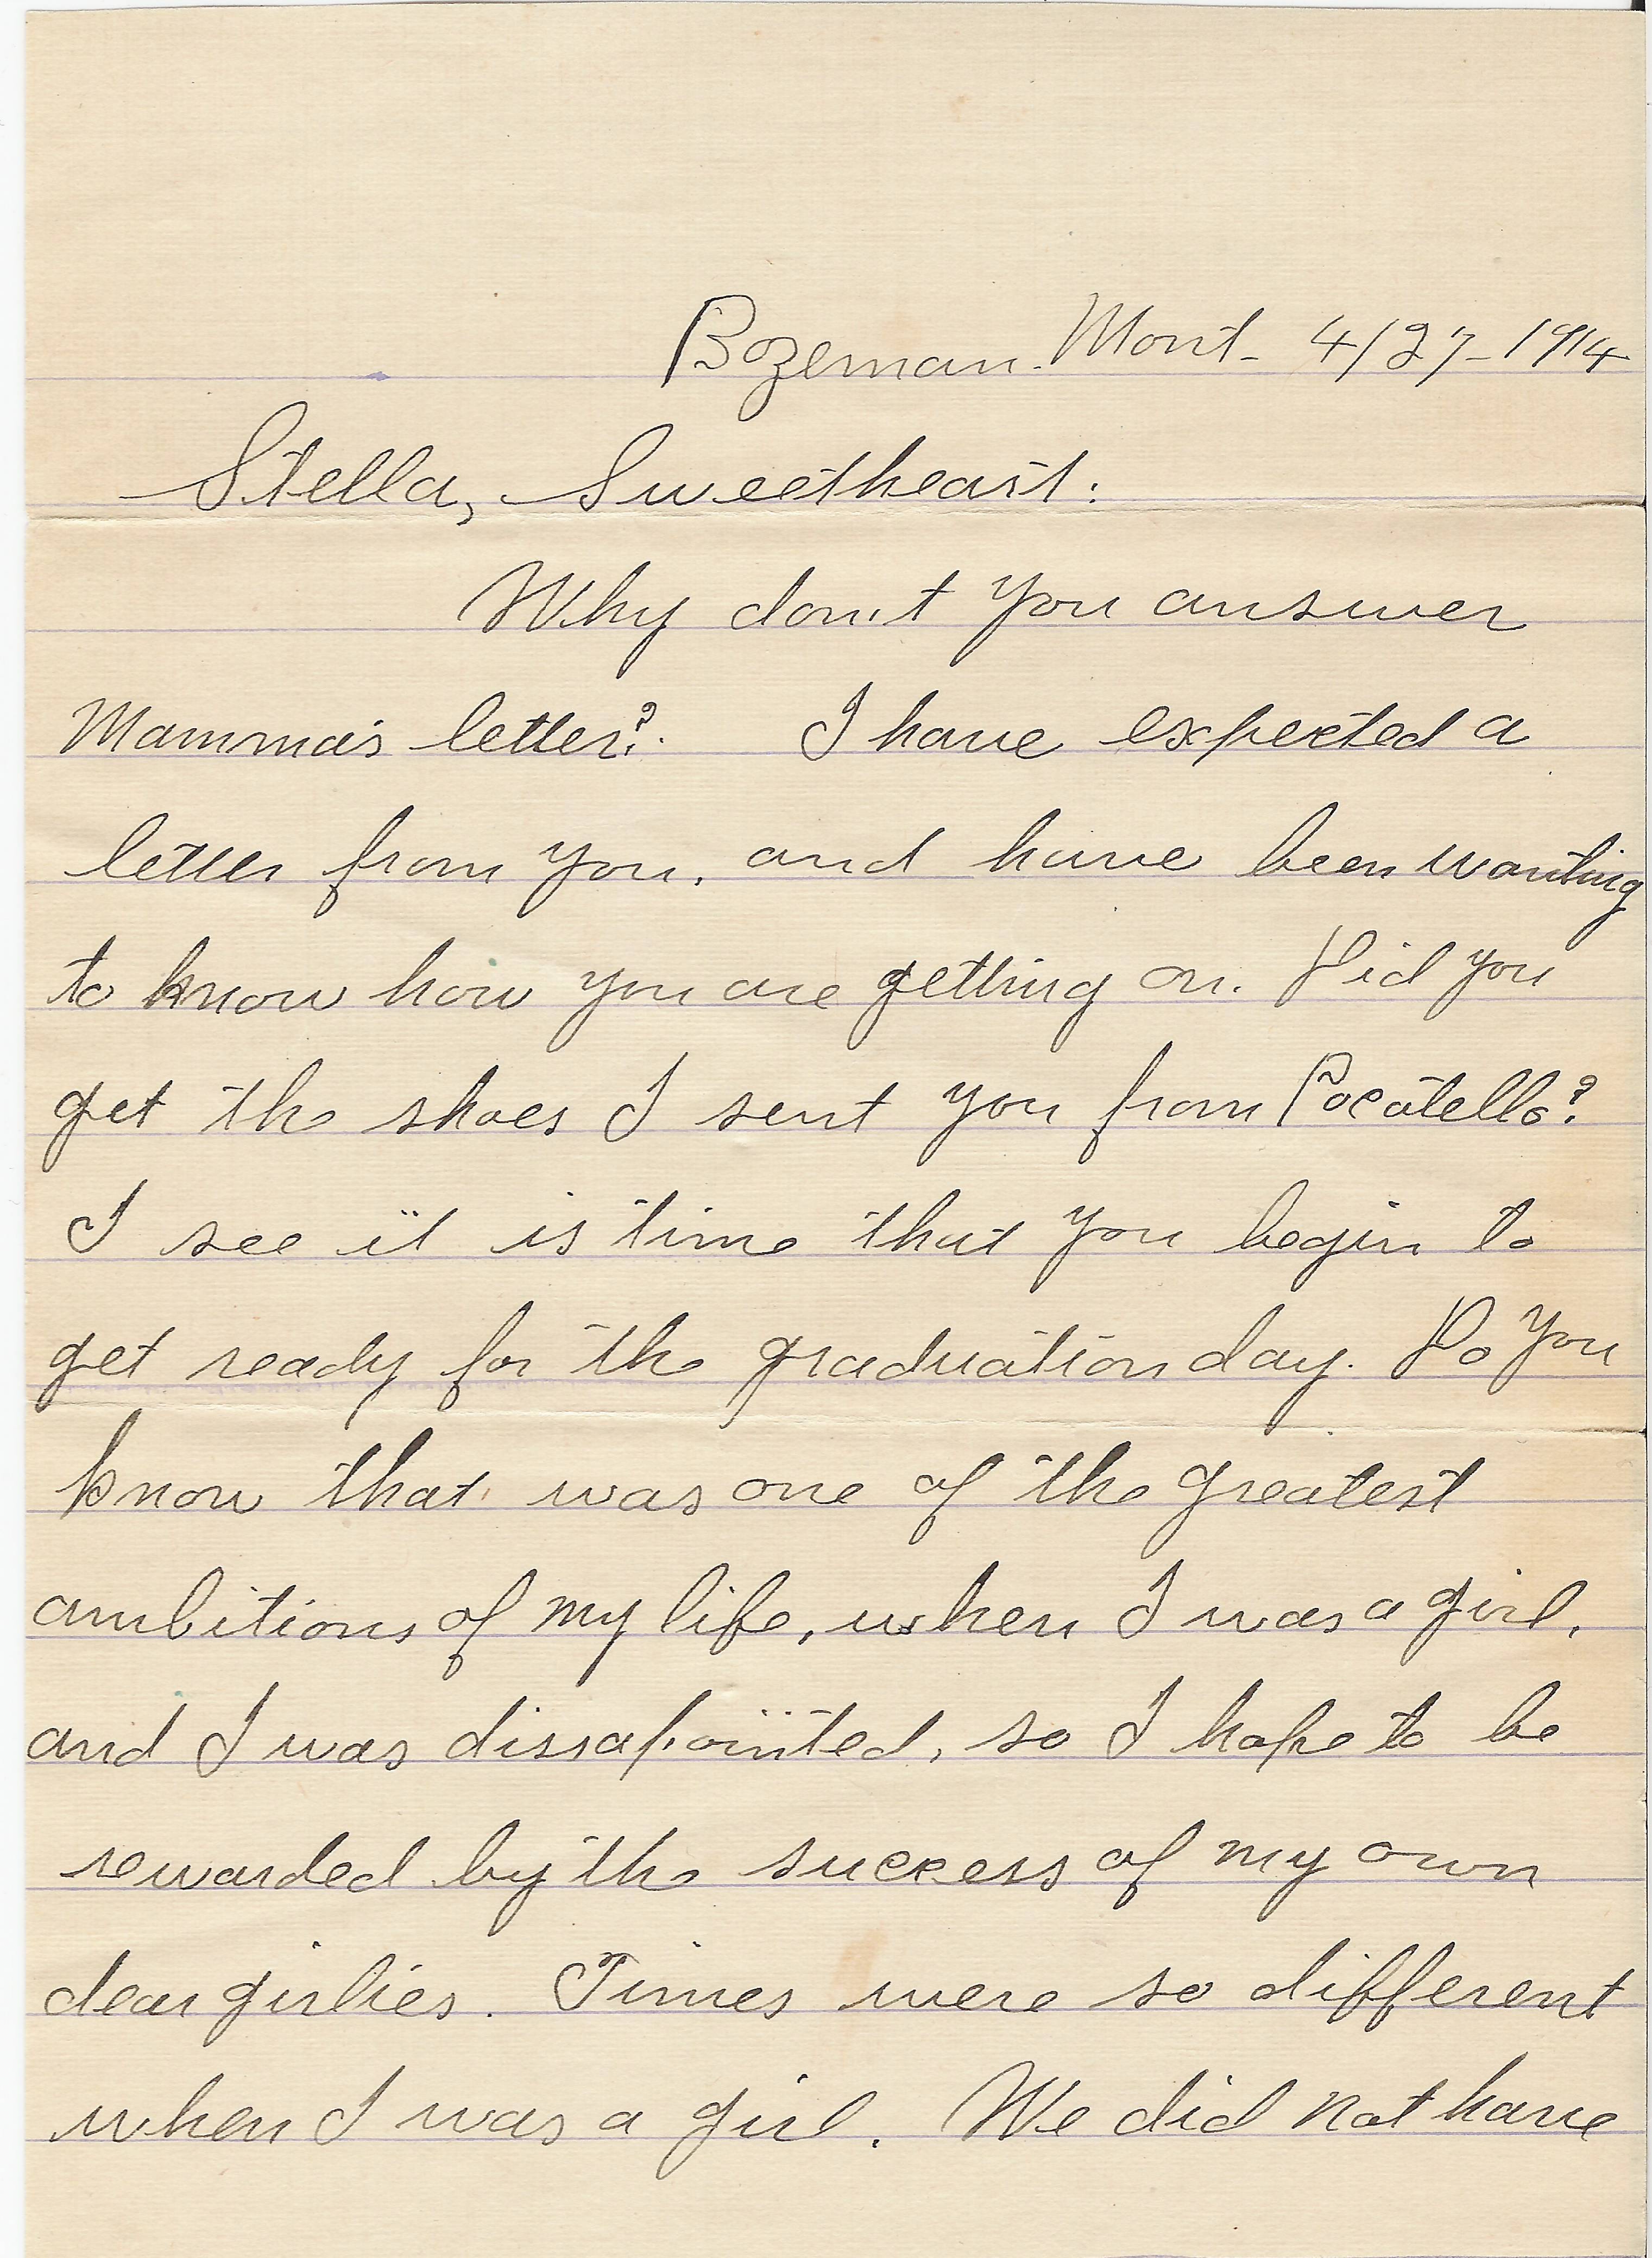 Bozeman. Mont- 4/27-1914
Stella, Sweetheart:
Why don't you answer
Mamma's letter? I have expected a
letter from you, and have been wanting
to know how you are getting on. Did you
get the shoes I sent you from Pocatello?
I see it is time that you begin to
get ready for the graduation day. Do you
know that was one of the greatest
ambitions of my life, when I was a girl,
and I was dissapointed, so I hope to be
rewarded by the success of my own
dear girlies. Times were so different
when I was a girl. We did not have